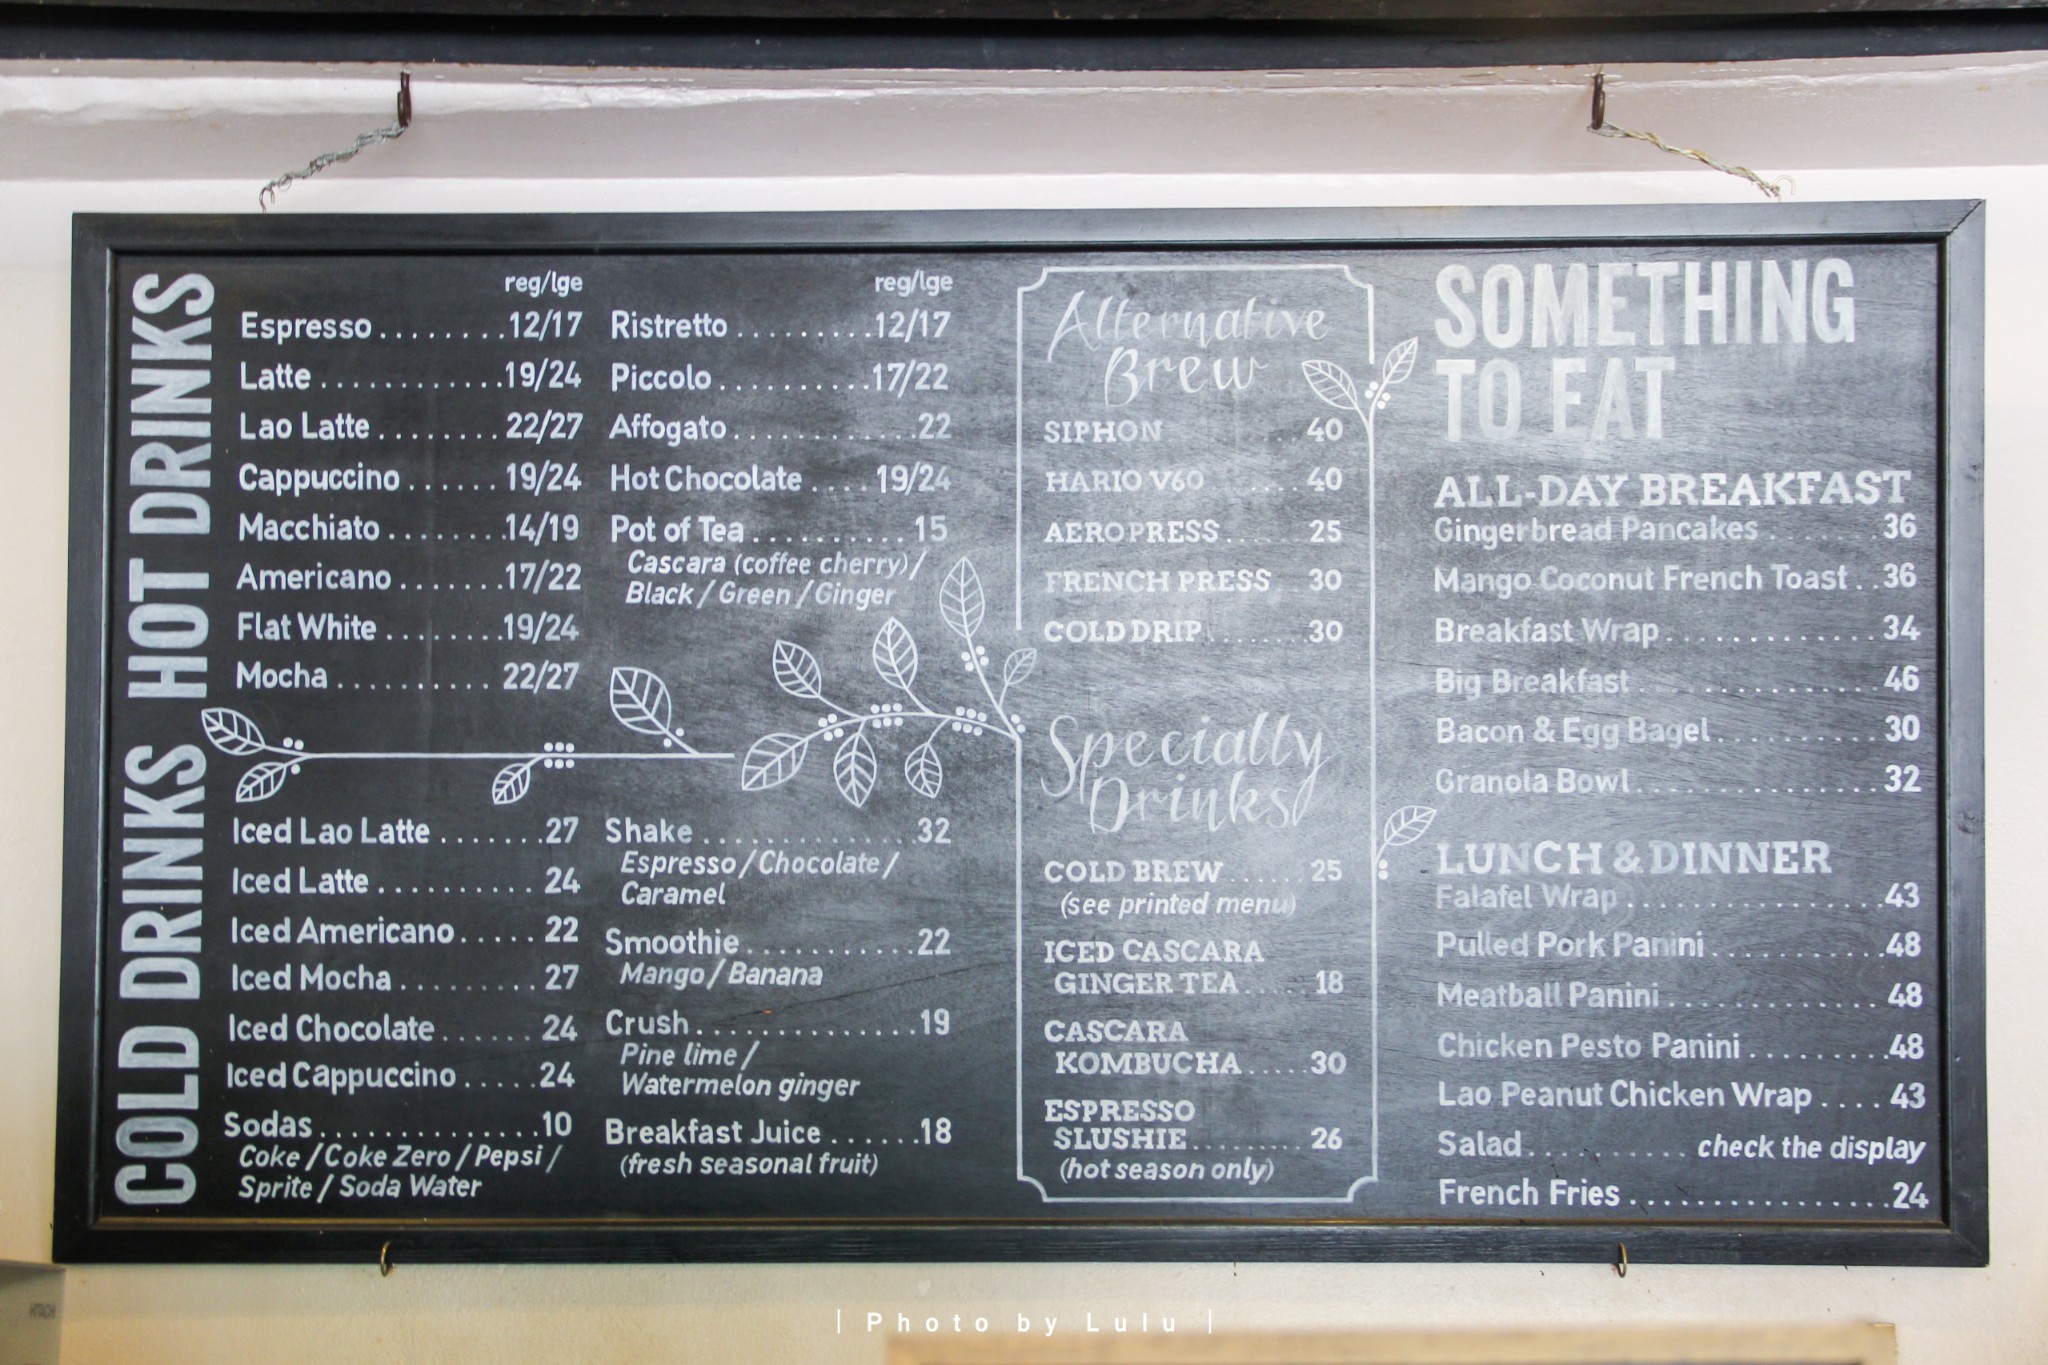 HOT DRINKS
reg/lge
Espresso ........ 12/17
Latte ............ 19/24
Lao Latte ........ 22/27
Cappuccino ...... 19/24
Macchiato ........ 14/19
Americano ....... 17/22
Flat White ........ 19/24
Mocha .......... 22/27
reg/lge
Ristretto ......... 12/17
Piccolo .......... 17/22
Affogato ............ 22
Hot Chocolate .... 19/24
Pot of Tea .......... 15
Cascara (coffee cherry) /
Black / Green / Ginger
COLD DRINKS
Iced Lao Latte ....... 27
Iced Latte .......... 24
Iced Americano ..... 22
Iced Mocha ......... 27
Iced Chocolate ...... 24
Iced Cappuccino ..... 24
Sodas .............. 10
Coke / Coke Zero / Pepsi /
Sprite / Soda Water
Shake .............. 32
Espresso / Chocolate /
Caramel
Smoothie ........... 22
Mango / Banana
Crush .............. 19
Pine lime /
Watermelon ginger
Breakfast Juice ...... 18
(fresh seasonal fruit)
Alternative
Brew
SIPHON .... 40
HARIO V60 .... 40
AEROPRESS ..... 25
FRENCH PRESS 30
COLD DRIP ....... 30
Specialty
Drinks
COLD BREW ...... 25
(see printed menu)
ICED CASCARA
GINGER TEA .... 18
CASCARA
KOMBUCHA ..... 30
ESPRESSO
SLUSHIE ......... 26
(hot season only)
SOMETHING
TO EAT
ALL-DAY BREAKFAST
Gingerbread Pancakes ....... 36
Mango Coconut French Toast .. 36
Breakfast Wrap ............. 34
Big Breakfast .............. 46
Bacon & Egg Bagel .......... 30
Granola Bowl .............. 32
LUNCH & DINNER
Falafel Wrap ............... 43
Pulled Pork Panini .......... 48
Meatball Panini ............. 48
Chicken Pesto Panini ......... 48
Lao Peanut Chicken Wrap .... 43
Salad .......... check the display
French Fries ............... 24
HITACHI
| Photo by Lulu |